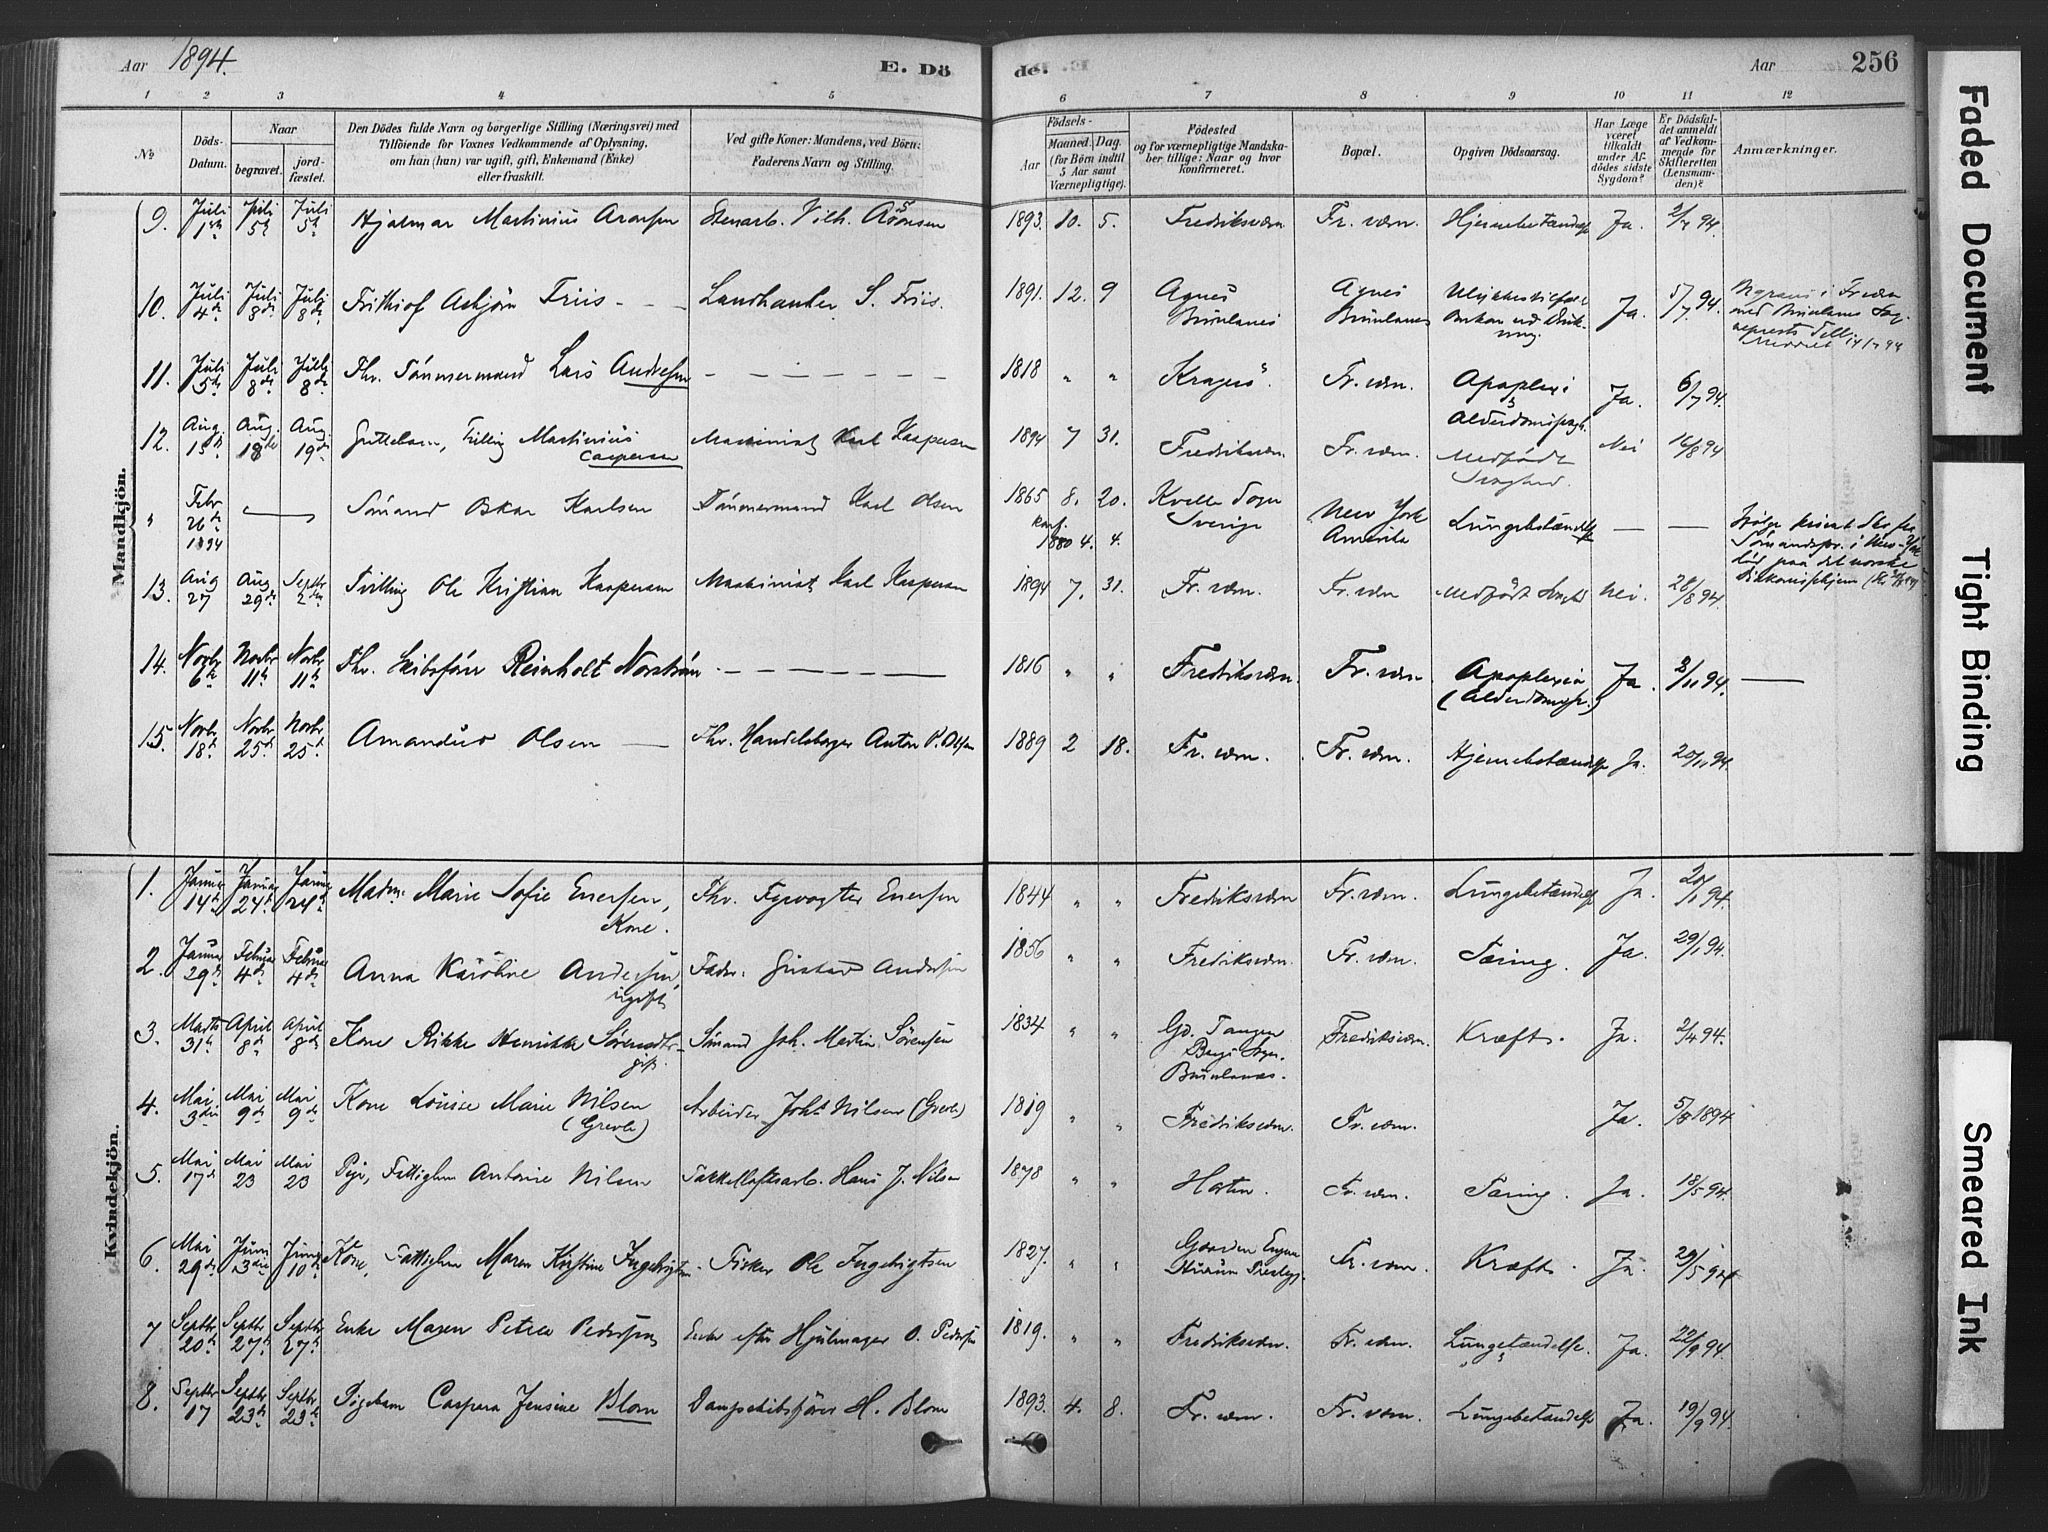 Aar 1894.
E. Dö
de.
Aar
256
1 2 3 4 5 6 7 8 9 10 11 12
№
Döds-
Datum.
Naar
begravet.
jord-
fæstet.
Den Dödes fulde Navn og borgerlige Stilling (Næringsvei) med
Tilföiende for Voxnes Vedkommende af Oplysning,
om han (hun) var ugift, gift, Enkemand (Enke)
eller fraskilt.
Ved gifte Koner: Mandens, ved Börn:
Faderens Navn og Stilling.
Födsels-
Aar
Maaned. Dag.
(for Börn indtil
5 Aar samt
Værnepligtige).
Födested
og for værnepligtige Mandska-
ber tillige: Naar og hvor
konfirmeret.
Bopæl.
Opgiven Dödsaarsag.
Har Læge
været
tilkaldt
under Af-
dödes sidste
Sygdom?
Er Dödsfal-
det anmeldt
af Vedkom-
mende for
Skifteretten
(Lensman-
den)?
Anmærkninger.
Mandkjön.
9. Juli 1ste Juli 5te Juli 5te Hjalmar Martinius Aronsen Stenarb. Vilh. Aronsen 1893 10. 5. Fredriksværn Fr. værn. Hjernebetændelse Ja. 2/7 94.
10. Juli 4de Juli 8de Juli 8de Frithiof Asbjörn Friis Landhandler S. Friis. 1891. 12. 9 Agnes Brunlanes Agnes Brunlanes Ja 5/7 94.
11. Juli 5te Juli 8de Juli 8de Fhv. Tömmermand Lars Andresen 1818 " " Kragerö. Fr. værn. Apoplexi Alderdomssvagh. Ja. 6/7 94.
12. Aug. 15de Aug. 18de Aug 19de Guttebarn, Tvilling Martinius Caspersen Maskinist Karl Kaspersen 1894 7 31. Fredriksværn. Fr. værn. Medfödt Svaghed. Nei 16/8 94
" Febr 26de 1894 Sömand Oskar Karlsen Tömmermand Karl Olsen 1865 8. 20. konf. 1880 4. 4. Kville Sogn Sverige New York Amerika Lungebetændelse
13. Aug 27 Aug 29de Septbr 2den Tvilling Ole Kristian Kaspersen Maskinist Karl Kaspersen 1894 7. 31. Fr. værn. Fr. værn Medfödt Svaghed Nei 28/8 94.
14. Novbr 6te Novbr 11te Novbr 11te Fhv. Skibsförer Reinholt Norström 1816 " " Fredriksværn. Fr. værn Apoplexia (Alderdomssv.) Ja. 8/11 94.
15. Novbr 18de Novbr 25de Novbr 25de Amandus Olsen Fhv. Handelsborger Anton P. Olsen 1889 2 18. Fr. værn. Fr. værn. Hjernebetændelse Ja. 20/11 94.
Kvindekjön.
1. Januar 14de Januar 24de Januar 24de Madm. Marie Sofie Enersen, Kone. Fhv. Fyrvogter Enersen 1844 " " Fredriksværn Fr. værn. Lungebetændelse Ja. 20/1 94.
2. Januar 29de Februar 4de Februar 4de Anna Karoline Andersen, ugift Fader: Gustav Andersen 1856 " " Fredriksværn. Fr. værn. Tæring. Ja. 29/1 94.
3. Marts 31te April 8de April 8de Kone Rikke Henrikke Sörensdtr. gift. Sömand Joh. Martin Sörensen 1834 " " Gd. Tangen Bergs Sogn. Brunlanes. Fredriksværn. Kræft. Ja. 2/4 94.
4. Mai 3die Mai 9de Mai 9de Kone Louise Marie Nilsen (Grevle) Arbeider Joh. Nilsen (Grevle) 1819 " " Fredriksværn. Fr. værn. Ja. 5/5 1894
5. Mai 17de Mai 23 Mai 23 Pige, Fattiglem Antonie Nilsen Takkelloftsarb. Hans J. Nilsen 1878 " " Horten. Fr. værn. Tæring. Ja. 18/5 94.
6. Mai 29de Juni 3die Juni 10de Kone, Fattiglem Maren Kirstine Ingebrigtsen Fisker Ole Ingebrigtsen 1827. " " Gaarden Hurum Prestegj. Fr. værn. Kræft. Ja. 29/5 94
7 Septbr 20de Septbr 27de Septbr 27de Enke Maren Petrea Pedersen Enke efter Hjulmager O. Pedersen 1819. " " Fredriksværn. Fr. værn. Lungetændelse. Ja. 22/9 94.
8. Septbr 17 Septbr 23de Septbr 23de Pigebarn Caspara Jensine Blom Dampskibsförer H. Blom 1893. 4. 8. Fr. værn. Fr. værn. Lungebetændelse Ja. 19/9 94.
Faded Document
Tight Binding
Smeared Ink